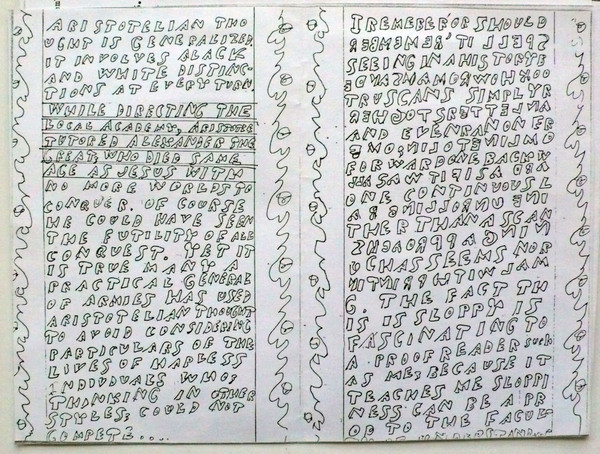 ARISTOTELIAN THO
UGHT IS GENERALIZED.
IT INVOLVES BLACK
AND WHITE DISTINC-
TIONS AT EVERY TURN
WHILE DIRECTING THE
LOCAL ACADEMY, ARISTOTLE
TUTORED ALEXANDER THE
GREAT, WHO DIED SAME
AGE AS JESUS WITH
NO MORE WORLDS TO
CONQUER. OF COURSE
WE COULD HAVE SEEN
THE FUTILITY OF ALL
CONQUEST. YET IT
IS TRUE MANY A
PRACTICAL GENERAL
OF ARMIES HAS USED
ARISTOTELIAN THOUGHT
TO AVOID CONSIDERING
PARTICULARS OF THE
LIVES OF HAPLESS
INDIVIDUALS WHO,
THINKING IN OTHER
STYLES, COULD NOT
COMPETE....
I REMEBER OR SHOULD
SPELL IT, REMEMBER
SEEING IN A HISTORY B
OOK HOW ROMANS AND E
TRUSCANS SIMPLY R
AN LETTERS TOGETHER
AND EVEN RAN ON FR
OM LINE TO LINE,
FORWARD ONE BACKW
ARD AS IF IT WAS
ONE CONTINUOUS L
INE UNROLLING RA
THER THAN A SCAN
NING APPROACH S
UCH AS SEEMS NOR
MAL WITH WRITIN
G. THE FACT TH
IS IS SLOPPY IS
FASCINATING TO
A PROOFREADER such
AS ME, BECAUSE IT
TEACHES ME SLOPPI
NESS CAN BE A PR
OP TO THE FACUL-